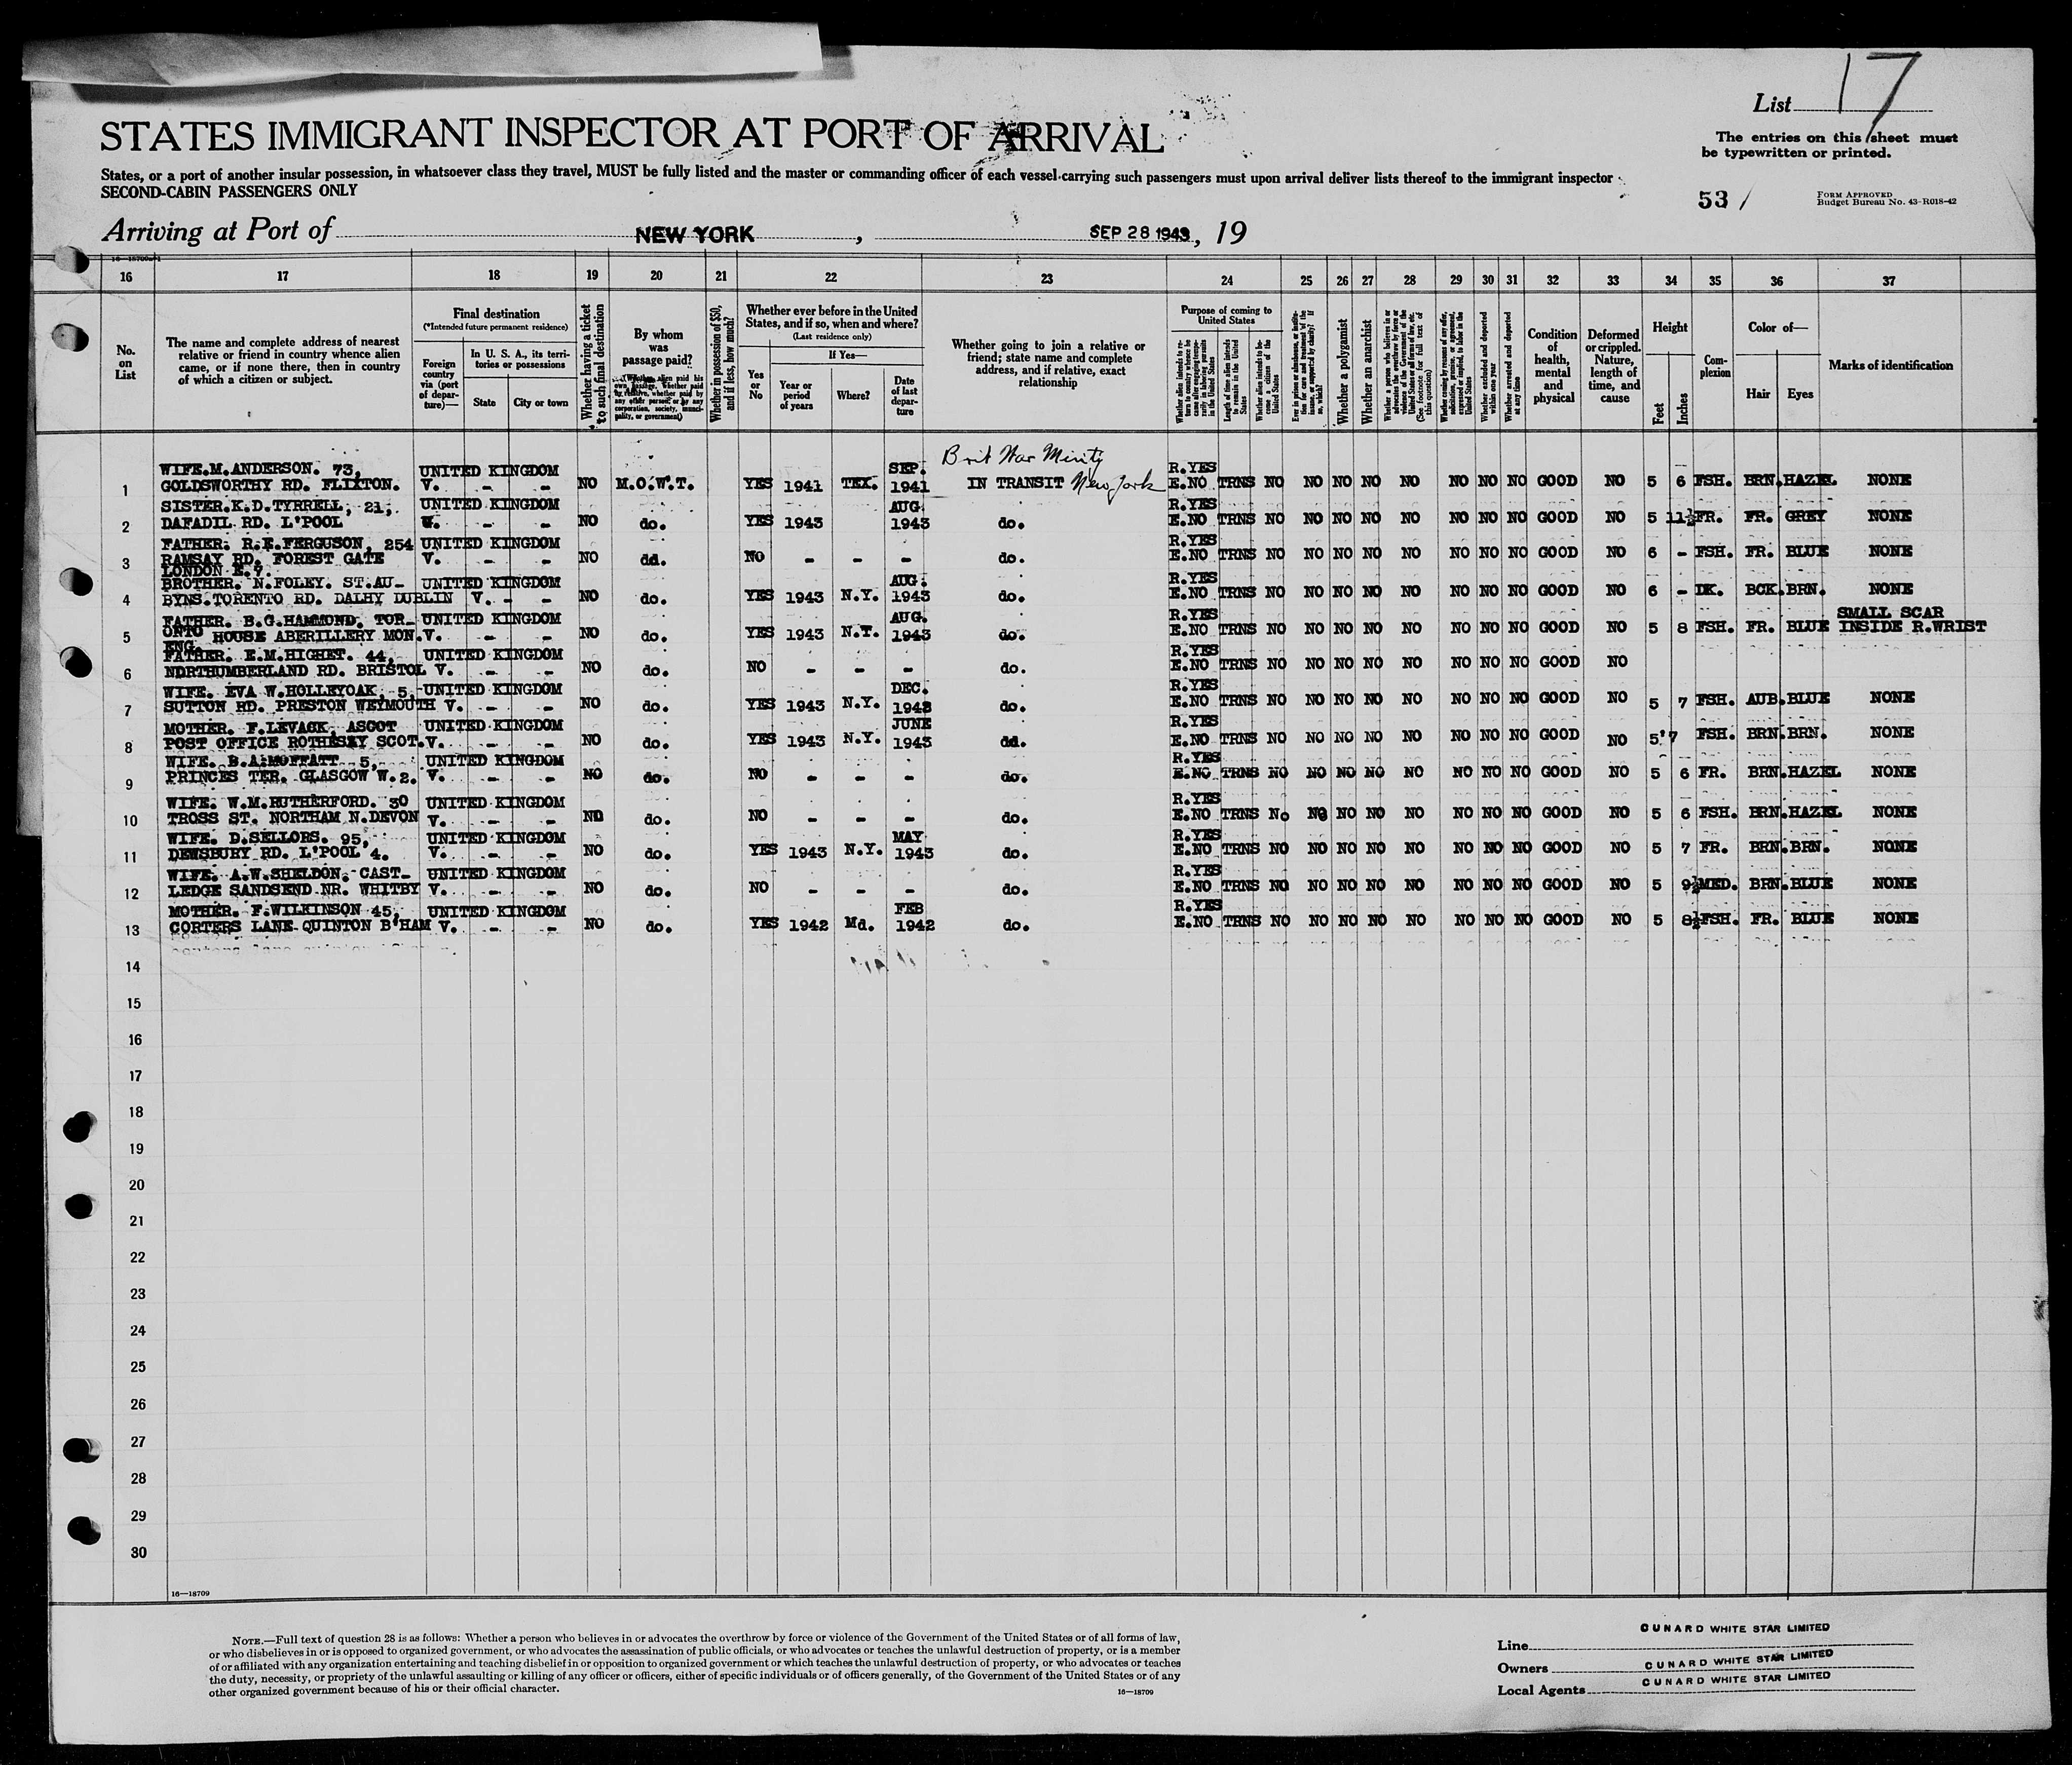 List 17
The entries on this sheet must
be typewritten or printed.
STATES IMMIGRANT INSPECTOR AT PORT OF ARRIVAL
States, or a port of another insular possession, in whatsoever class they travel, MUST be fully listed and the master or commanding officer of each vessel carrying such passengers must upon arrival deliver lists thereof to the immigrant inspector
SECOND-CABIN PASSENGERS ONLY
53 /
FORM APPROVED
Budget Bureau No. 43-R018-42
Arriving at Port of NEW YORK, SEP 28 1943, 19
16 17 18 19 20 21 22 23 24 25 26 27 28 29 30 31 32 33 34 35 36 37
No. on List
The name and complete address of nearest relative or friend in country whence alien came, or if none there, then in country of which a citizen or subject.
Final destination
(*Intended future permanent residence)
Foreign country via (port of departure)—
In U. S. A., its territories or possessions
State
City or town
Whether having a ticket to such final destination
By whom was passage paid?
(Whether alien paid his own passage, whether paid by relative, whether paid by any other person, or by any corporation, society, municipality, or government)
Whether in possession of $50, and if less, how much?
Whether ever before in the United States, and if so, when and where?
(Last residence only)
Yes or No
If Yes—
Year or period of years
Where?
Date of last departure
Whether going to join a relative or friend; state name and complete address, and if relative, exact relationship
Purpose of coming to United States
Length of time alien intends to remain in the United States
Whether alien intends to become a citizen of the United States
Whether a polygamist
Whether an anarchist
Whether excluded and deported within one year
Whether arrested and deported at any time
Condition of health, mental and physical
Deformed or crippled. Nature, length of time, and cause
Height
Feet
Inches
Complexion
Color of—
Hair
Eyes
Marks of identification
Brit War Minity
WIFE.M.ANDERSON. 73, UNITED KINGDOM SEP. R.YES
1 GOLDSWORTHY RD. FLIXTON. V. - - NO M.O.W.T. YES 1941 TEX. 1941 IN TRANSIT New York E.NO TRNS NO NO NO NO NO NO NO NO GOOD NO 5 6 FSH. BRN. HAZEL NONE
SISTER.K.D.TYRRELL, 21, UNITED KINGDOM AUG. R.YES
2 DAFADIL RD. L'POOL V. - - NO do. YES 1943 1943 do. E.NO TRNS NO NO NO NO NO NO NO NO GOOD NO 5 11½ FR. FR. GREY NONE
FATHER. R.E.FERGUSON, 254 UNITED KINGDOM R.YES
3 RAMSAY RD. FOREST GATE V. - - NO dd. NO - - - do. E.NO TRNS NO NO NO NO NO NO NO NO GOOD NO 6 - FSH. FR. BLUE NONE
LONDON E.7.
BROTHER. N.FOLEY. ST.AU- UNITED KINGDOM AUG. R.YES
4 BYNS.TORENTO RD. DALHY DUBLIN V. - - NO do. YES 1943 N.Y. 1943 do. E.NO TRNS NO NO NO NO NO NO NO NO GOOD NO 6 - DK. BCK. BRN. NONE
FATHER. B.G.HAMMOND. TOR- UNITED KINGDOM AUG. R.YES SMALL SCAR
5 ONTO HOUSE ABERILLERY MON. V. - - NO do. YES 1943 N.Y. 1943 do. E.NO TRNS NO NO NO NO NO NO NO NO GOOD NO 5 8 FSH. FR. BLUE INSIDE R.WRIST
ENG.
FATHER. E.M.HIGHET. 44, UNITED KINGDOM R.YES
6 NORTHUMBERLAND RD. BRISTOL V. - - NO do. NO - - - do. E.NO TRNS NO NO NO NO NO NO NO NO GOOD NO
WIFE. EVA W.HOLLEYOAK, 5, UNITED KINGDOM DEC. R.YES
7 SUTTON RD. PRESTON WEYMOUTH V. - - NO do. YES 1943 N.Y. 1942 do. E.NO TRNS NO NO NO NO NO NO NO NO GOOD NO 5 7 FSH. AUB. BLUE NONE
MOTHER. F.LEVACK, ASCOT UNITED KINGDOM JUNE R.YES
8 POST OFFICE ROTHESAY SCOT. V. - - NO do. YES 1943 N.Y. 1943 dd. E.NO TRNS NO NO NO NO NO NO NO NO GOOD NO 5'7 FSH. BRN. BRN. NONE
WIFE. B.A.MOFFATT 5, UNITED KINGDOM R.YES
9 PRINCES TER. GLASGOW W.2. V. - - NO do. NO - - - do. E.NO TRNS NO NO NO NO NO NO NO NO GOOD NO 5 6 FR. BRN. HAZEL NONE
WIFE. W.M.RUTHERFORD. 30 UNITED KINGDOM R.YES
10 TROSS ST. NORTHAM N.DEVON V. - - NO do. NO - - - do. E.NO TRNS No NO NO NO NO NO NO NO GOOD NO 5 6 FSH. BRN. HAZEL NONE
WIFE. D.SELLORS. 95, UNITED KINGDOM MAY R.YES
11 DEWSBURY RD. L'POOL 4. V. - - NO do. YES 1943 N.Y. 1943 do. E.NO TRNS NO NO NO NO NO NO NO NO GOOD NO 5 7 FR. BRN. BRN. NONE
WIFE. A.W.SHELDON. CAST- UNITED KINGDOM R.YES
12 LEDGE SANDSEND NR. WHITBY V. - - NO do. NO - - - do. E.NO TRNS NO NO NO NO NO NO NO NO GOOD NO 5 9½ MED. BRN. BLUE NONE
MOTHER. F.WILKINSON 45, UNITED KINGDOM FEB R.YES
13 CORTERS LANE QUINTON B'HAM V. - - NO do. YES 1942 Md. 1942 do. E.NO TRNS NO NO NO NO NO NO NO NO GOOD NO 5 8½ FSH. FR. BLUE NONE
14
15
16
17
18
19
20
21
22
23
24
25
26
27
28
29
30
16—18709
NOTE.—Full text of question 28 is as follows: Whether a person who believes in or advocates the overthrow by force or violence of the Government of the United States or of all forms of law,
or who disbelieves in or is opposed to organized government, or who advocates the assassination of public officials, or who advocates or teaches the unlawful destruction of property, or is a member
of or affiliated with any organization entertaining and teaching disbelief in or opposition to organized government or which teaches the unlawful destruction of property, or who advocates or teaches
the duty, necessity, or propriety of the unlawful assaulting or killing of any officer or officers, either of specific individuals or of officers generally, of the Government of the United States or of any
other organized government because of his or their official character.
16—18709
Line CUNARD WHITE STAR LIMITED
Owners CUNARD WHITE STAR LIMITED
Local Agents CUNARD WHITE STAR LIMITED